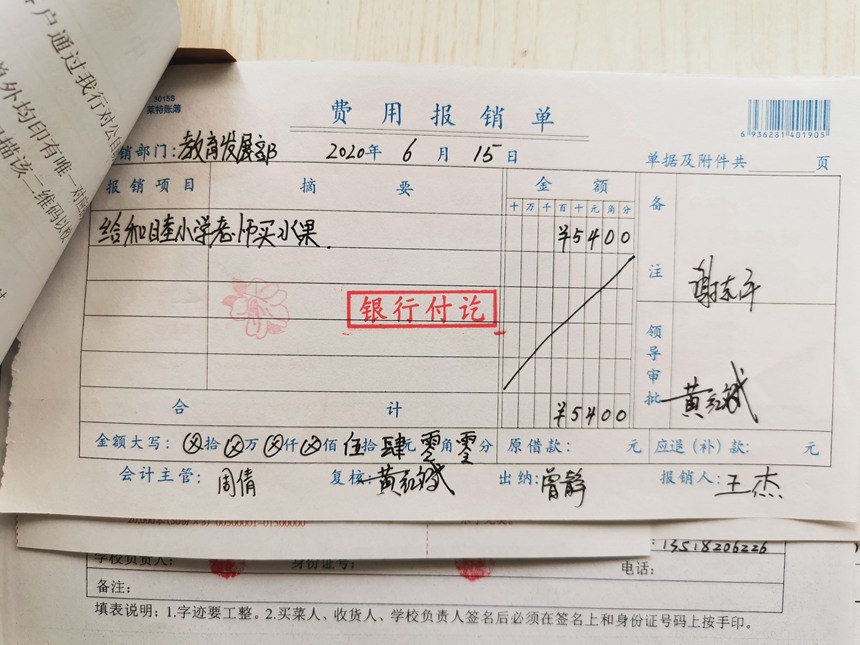 户通过我行对公自
单外均印有唯一对
扫描该二维码以校
3015S
莱特账簿
费用报销单
6 936281 401905
销部门:教育发展部 2020年 6月 15日 单据及附件共 页
报销项目 摘要 金额 备注
十万千百十元角分
给和睦小学老师买水果 ¥5400
谢
银行付讫
领导审批 黄红斌
合计 ¥5400
金额大写:ⓧ拾ⓧ万ⓧ仟ⓧ佰伍拾肆元零角零分 原借款: 元 应退(补)款: 元
会计主管:周倩 复核:黄红斌 出纳:曾静 报销人:王杰
20,000本(50份×3) 00500001-01500000
13518206226
学校负责人: 身份证号: 电话:
备注:
填表说明:1.字迹要工整。2.买菜人、收货人、学校负责人签名后必须在签名上和身份证号码上按手印。